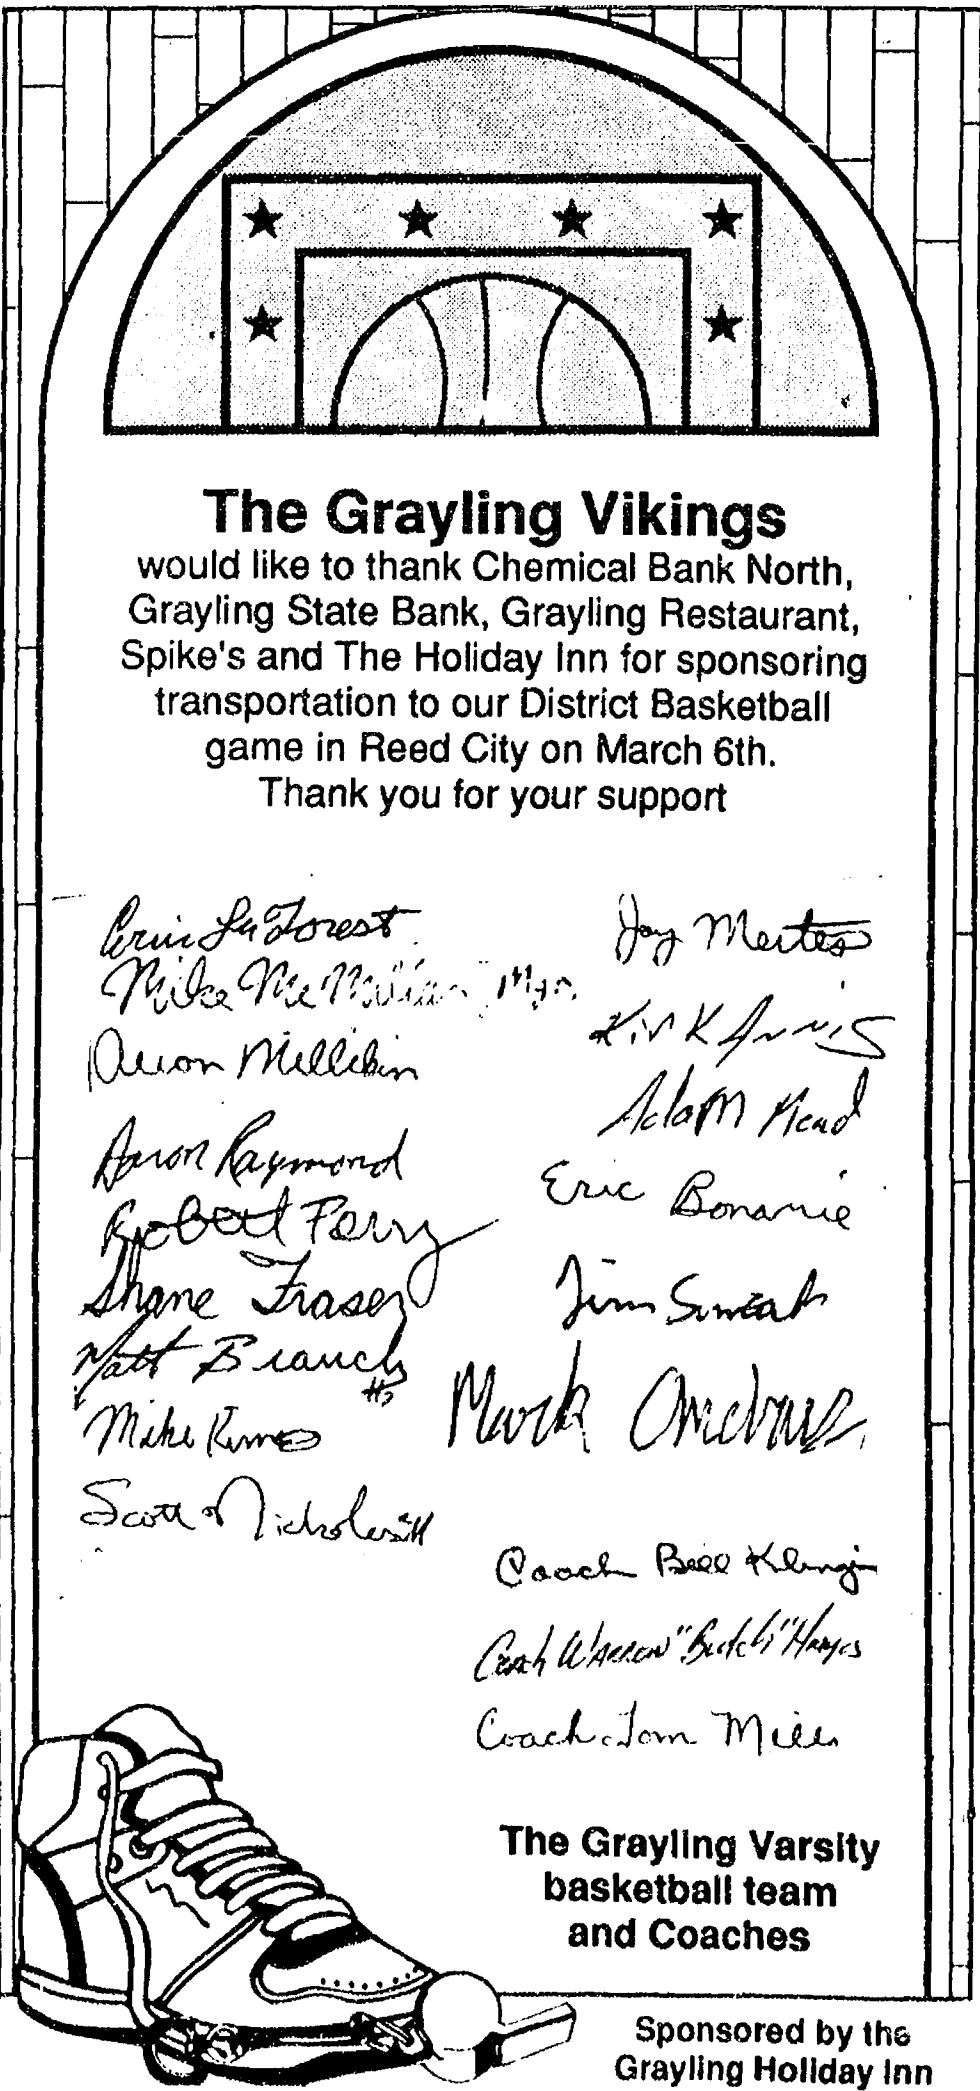 The Grayling Vikings
would like to thank Chemical Bank North,
Grayling State Bank, Grayling Restaurant,
Spike's and The Holiday Inn for sponsoring
transportation to our District Basketball
game in Reed City on March 6th.
Thank you for your support
LaForest
Mike McMillan, Mgr.
Millikin
Aaron Raymond
Robert Perry
Shane Fraser
Matt Branch
Mike
Scott
Jay Mertes
Kirk Annis
Adam Mead
Eric Bonamie
Jim Sweat
Mark
Coach Bill
Coach Warren "Butch" Hayes
Coach Tom Mills
The Grayling Varsity
basketball team
and Coaches
Sponsored by the
Grayling Holiday Inn